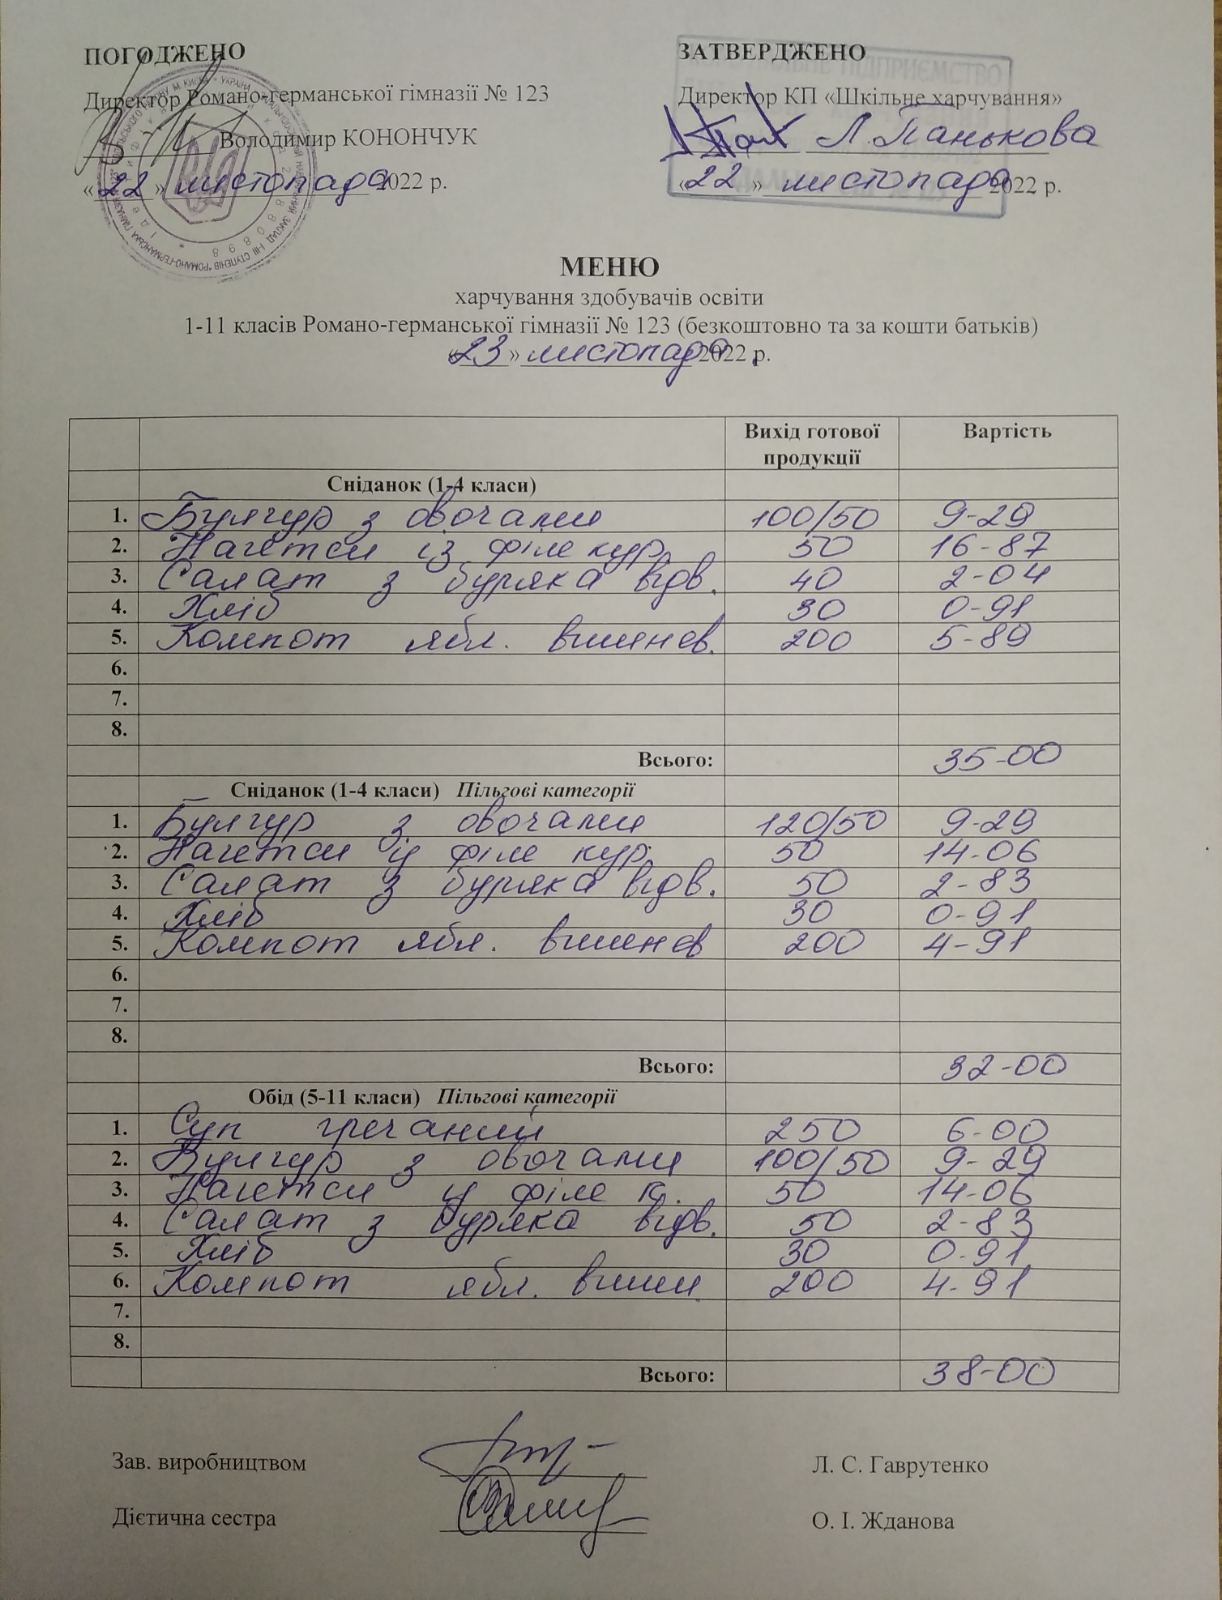 ПОГОДЖЕНО
Директор Романо-германської гімназії № 123
Володимир КОНОНЧУК
«22» листопада 2022 р.
ЗАТВЕРДЖЕНО
Директор КП «Шкільне харчування»
Л. Панькова
«22» листопада 2022 р.
МЕНЮ
харчування здобувачів освіти
1-11 класів Романо-германської гімназії № 123 (безкоштовно та за кошти батьків)
«23» листопада 2022 р.
Вихід готової продукції Вартість
Сніданок (1-4 класи)
1. Булгур з овочами 100/50 9-29
2. Нагетси із філе кур. 50 16-87
3. Салат з буряка відв. 40 2-04
4. Хліб 30 0-91
5. Компот ябл. вишнев. 200 5-89
6.
7.
8.
Всього: 35-00
Сніданок (1-4 класи) Пільгові категорії
1. Булгур з овочами 120/50 9-29
2. Нагетси із філе кур. 50 14-06
3. Салат з буряка відв. 50 2-83
4. Хліб 30 0-91
5. Компот ябл. вишнев 200 4-91
6.
7.
8.
Всього: 32-00
Обід (5-11 класи) Пільгові категорії
1. Суп гречаний 250 6-00
2. Булгур з овочами 100/50 9-29
3. Нагетси із філе к. 50 14-06
4. Салат з буряка відв. 50 2-83
5. Хліб 30 0-91
6. Компот ябл. вишн 200 4-91
7.
8.
Всього: 38-00
Зав. виробництвом Л. С. Гаврутенко
Дієтична сестра О. І. Жданова